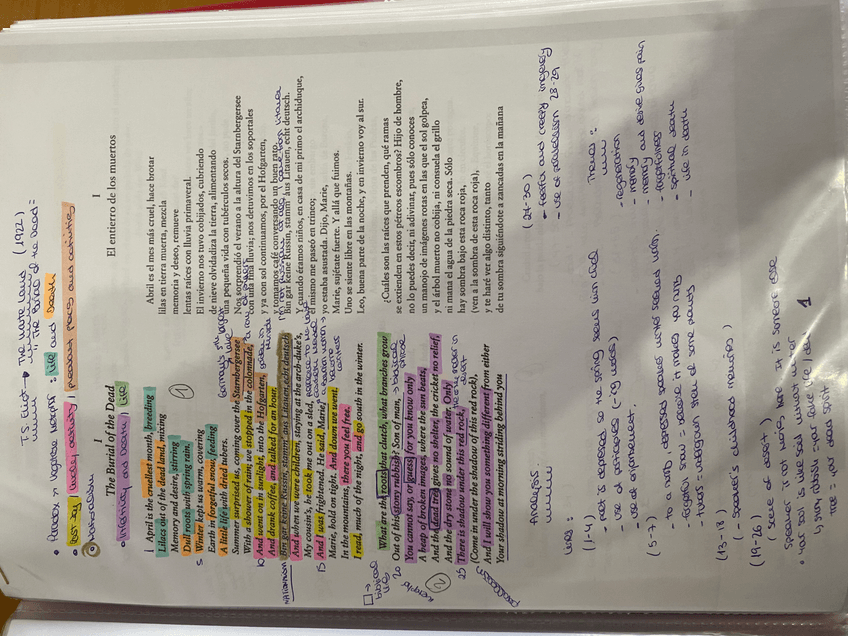 TS Eliot → The Waste Land (1922)
The Burial of the Dead:
life and death
Past joy / lively activity / peaceful places and activities
Naturalism
Infertility and death / life
I
The Burial of the Dead
1 April is the cruellest month, breeding
Lilacs out of the dead land, mixing
Memory and desire, stirring
Dull roots with spring rain.
5 Winter kept us warm, covering
Earth in forgetful snow, feeding
A little life with dried tubers.
Summer surprised us, coming over the Starnbergersee
With a shower of rain; we stopped in the colonnade,
10 And went on in sunlight, into the Hofgarten,
And drank coffee, and talked for an hour.
Bin gar keine Russin, stamm' aus Litauen, echt deutsch.
And when we were children, staying at the arch-duke's,
My cousin's, he took me out on a sled,
15 And I was frightened. He said, Marie,
Marie, hold on tight. And down we went.
In the mountains, there you feel free.
I read, much of the night, and go south in the winter.
What are the roots that clutch, what branches grow
20 Out of this stony rubbish? Son of man,
You cannot say, or guess, for you know only
A heap of broken images, where the sun beats,
And the dead tree gives no shelter, the cricket no relief,
And the dry stone no sound of water. Only
25 There is shadow under this red rock,
(Come in under the shadow of this red rock),
And I will show you something different from either
Your shadow at morning striding behind you
biblical phrase
I
El entierro de los muertos
Abril es el mes más cruel, hace brotar
lilas en tierra muerta, mezcla
memoria y deseo, remueve
lentas raíces con lluvia primaveral.
El invierno nos tuvo cobijados, cubriendo
de nieve olvidadiza la tierra, alimentando
una pequeña vida con tubérculos secos.
Nos sorprendió el verano a la altura del Starnbergersee
con una fina lluvia; nos detuvimos en los soportales
y ya con sol continuamos, por el Hofgarten,
y tomamos café conversando un buen rato.
Bin gar keine Russin, stamm' aus Litauen, echt deutsch.
Y cuando éramos niños, en casa de mi primo el archiduque,
él mismo me paseó en trineo;
yo estaba asustada. Dijo, Marie,
Marie, sujétate fuerte. Y allá que fuimos.
Uno se siente libre en las montañas.
Leo, buena parte de la noche, y en invierno voy al sur.
¿Cuáles son las raíces que prenden, qué ramas
se extienden en estos pétreos escombros? Hijo de hombre,
no lo puedes decir, ni adivinar, pues sólo conoces
un manojo de imágenes rotas en las que el sol golpea,
y el árbol muerto no cobija, ni consuela el grillo
ni mana el agua de la piedra seca. Sólo
hay sombra bajo esta roca roja,
(ven a la sombra de esta roca roja),
y te haré ver algo distinto, tanto
de tu sombra siguiéndote a zancadas en la mañana
Analysis
lines:
(1-4)
- poet is depressed so the spring seems
- use of participles (-ing words)
- use of enjambement.
(5-7)
forgetful snow = because it makes you numb
- tubers = underground stem of some plants
(13-18)
(- Speaker's childhood memories)
(19-26)
(scene of desert)
Speaker is not Marie here. It is someone else
(27-30)
- and creepy imagery
- use of parallelism 28-29
Themes:
- regeneration
- memory
- memory and desire gives pain
- forgetfulness
- spiritual death
- life in death
1